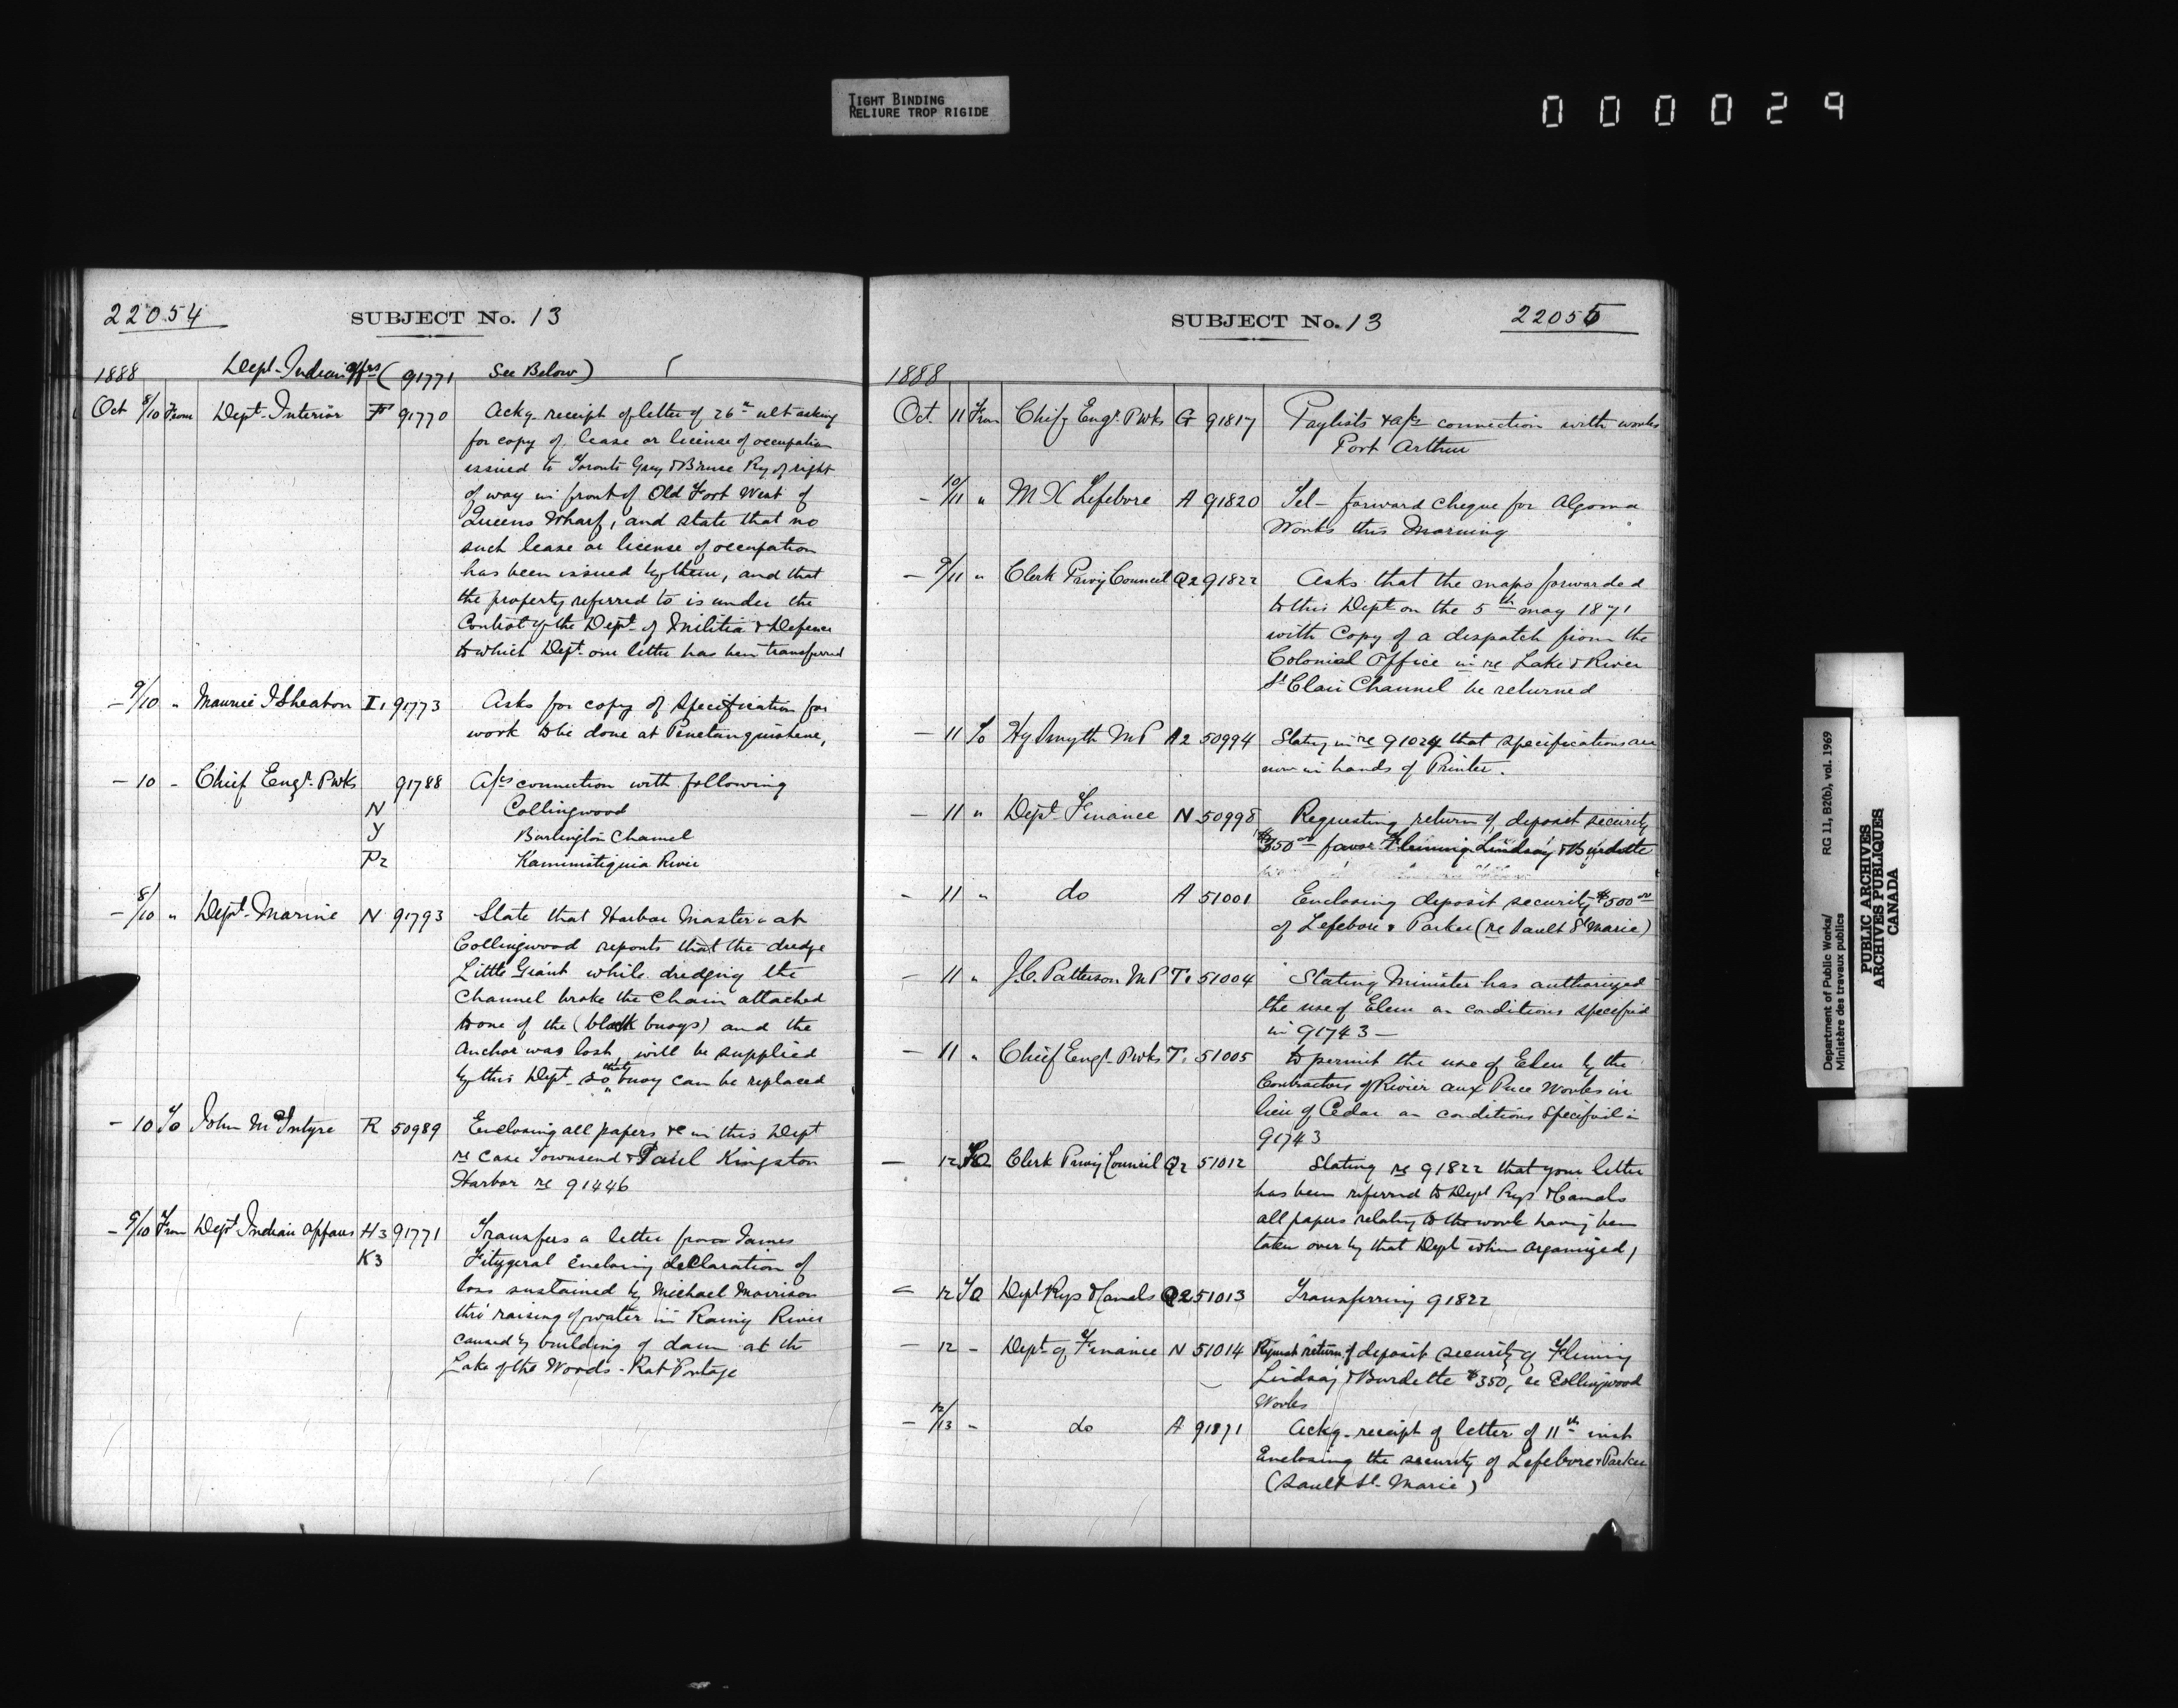 TIGHT BINDING
RELIURE TROP RIGIDE
000029
22054
SUBJECT No. 13
1888 Dept. Indian Affrs ( 91771 See Below)
Oct 8/10 From Dept. Interior 91770 Ackg. receipt of letter of 26th ult asking
for copy of lease or license of occupation
issued to Toronto Grey & Bruce Ry of right
of way in front of Old Fort West of
Queens Wharf, and state that no
such lease or license of occupation
has been issued by them, and that
the property referred to is under the
Control of the Dept. of Militia & Defence
to which Dept. our letter has been transferred
- 9/10 " Maurice I Sheaton I1 91773 Asks for copy of Specification for
work to be done at Penetanguishene,
- 10 - Chief Engr. Pwks 91788 A/cs connection with following
N Collingwood
Y Burlington Channel
P2 Kaministiquia River
- 8/10 " Dept. Marine N 91793 State that Harbor Master at
Collingwood reports that the dredge
Little Giant while dredging the
Channel broke the Chain attached
to one of the (black buoys) and the
Anchor was lost, will be supplied
by this Dept. so that buoy can be replaced
- 10 To John McIntyre R 50989 Enclosing all papers &c in this Dept
re Case Townsend & Paul Kingston
Harbor re 91446
- 9/10 From Dept Indian Affairs H3 91771 Transfers a letter from James
K3 Fitzgeral Enclosing declaration of
loss sustained by Michael Morrison
thro' raising of water in Rainy River
caused by building of dam at the
Lake of the Woods - Rat Portage
SUBJECT No. 13
22055
1888
Oct. 11 From Chief Engr. Pwks G 91817 Paylists & a/cs connection with works
Port Arthur
- 10/11 " M X Lefebvre A 91820 Tel - forward cheque for Algoma
Works this Morning
- 9/11 " Clerk Privy Council Q2 91822 Asks that the maps forwarded
to this Dept on the 5th May 1871
with Copy of a despatch from the
Colonial Office in re Lake & River
St Clair Channel be returned
- 11 To Hy Smyth MP A2 50994 Stating in re 91024 that specifications are
now in hands of Printer.
- 11 " Dept. Finance N 50998 Requesting return of deposit security
$350 00 favor Fleming Lindsay & Burdette
- 11 " do A 51001 Enclosing deposit security $500 00
of Lefebvre & Parker (re Sault St Marie)
- 11 " J.C. Patterson MP T1 51004 Stating Minister has authorized
the use of Elm on conditions specified
in 91743 -
- 11 " Chief Engr. Pwks T1 51005 to permit the use of Elm by the
Contractors of Rivier aux Puce Works in
lieu of Cedar on conditions specified in
91743
- 12 To Clerk Privy Council Q2 51012 Stating re 91822 that your letter
has been referred to Dept Rys & Canals
all papers relating to the work having been
taken over by that Dept when organized,
- 12 To Dept Rys & Canals Q2 51013 Transferring 91822
- 12 - Dept. of Finance N 51014 Request return of deposit security of Fleming
Lindsay & Burdette $350, re Collingwood
Works
- 12/13 - do A 91871 Ackg. receipt of letter of 11th inst
Enclosing the security of Lefebvre & Parker
(Sault St. Marie)
Department of Public Works/
Ministère des travaux publics
RG 11, B2(b), vol. 1969
PUBLIC ARCHIVES
ARCHIVES PUBLIQUES
CANADA